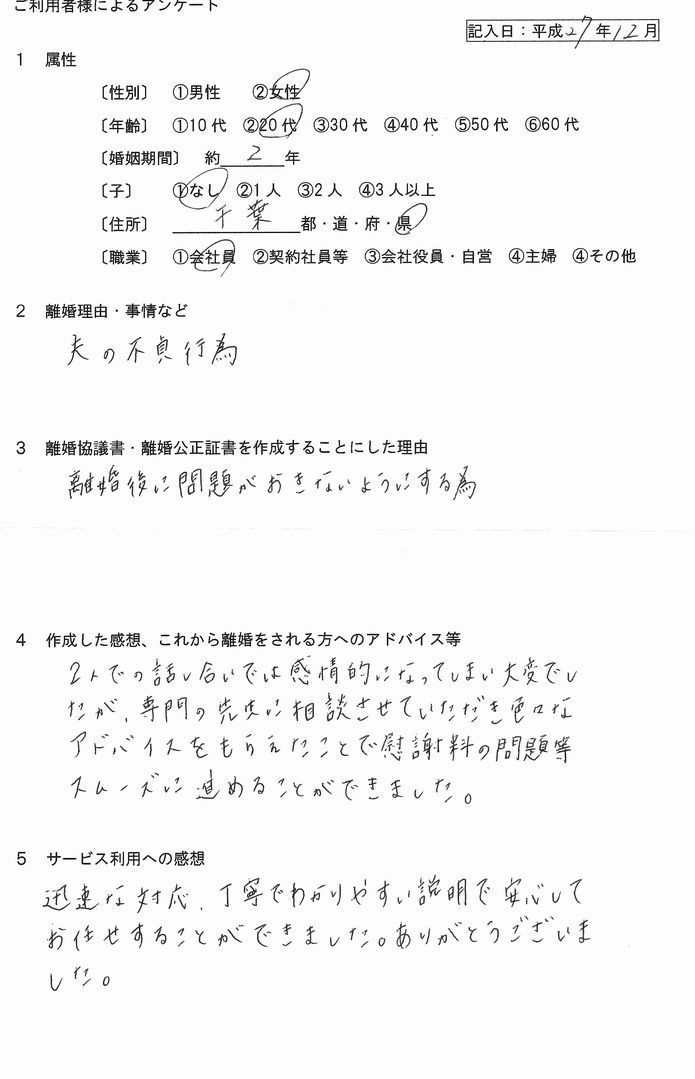 ご利用者様によるアンケート
記入日:平成27年12月
1 属性
〔性別〕 ①男性 ②女性
〔年齢〕 ①10代 ②20代 ③30代 ④40代 ⑤50代 ⑥60代
〔婚姻期間〕 約 2 年
〔子〕 ①なし ②1人 ③2人 ④3人以上
〔住所〕 千葉 都・道・府・県
〔職業〕 ①会社員 ②契約社員等 ③会社役員・自営 ④主婦 ④その他
2 離婚理由・事情など
夫の不貞行為
3 離婚協議書・離婚公正証書を作成することにした理由
離婚後に問題がおきないようにする為
4 作成した感想、これから離婚をされる方へのアドバイス等
2人での話し合いでは感情的になってしまい大変でし
たが、専門の先生に相談させていただき色々な
アドバイスをもらえたことで慰謝料の問題等
スムーズに進めることができました。
5 サービス利用への感想
迅速な対応、丁寧でわかりやすい説明で安心して
お任せすることができました。ありがとうございま
した。